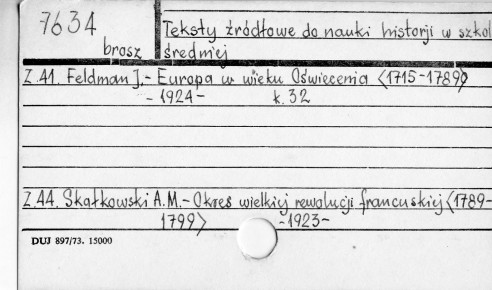 7634
brosz
Teksty źródłowe do nauki historji w szkol
średniej
Z.41. Feldman J.- Europa w wieku Oświecenia <1715-1789>
- 1924 - k. 32
Z.44. Skałkowski A.M.- Okres wielkiej rewolucji francuskiej <1789-
1799> -1923-
DUJ 897/73. 15000